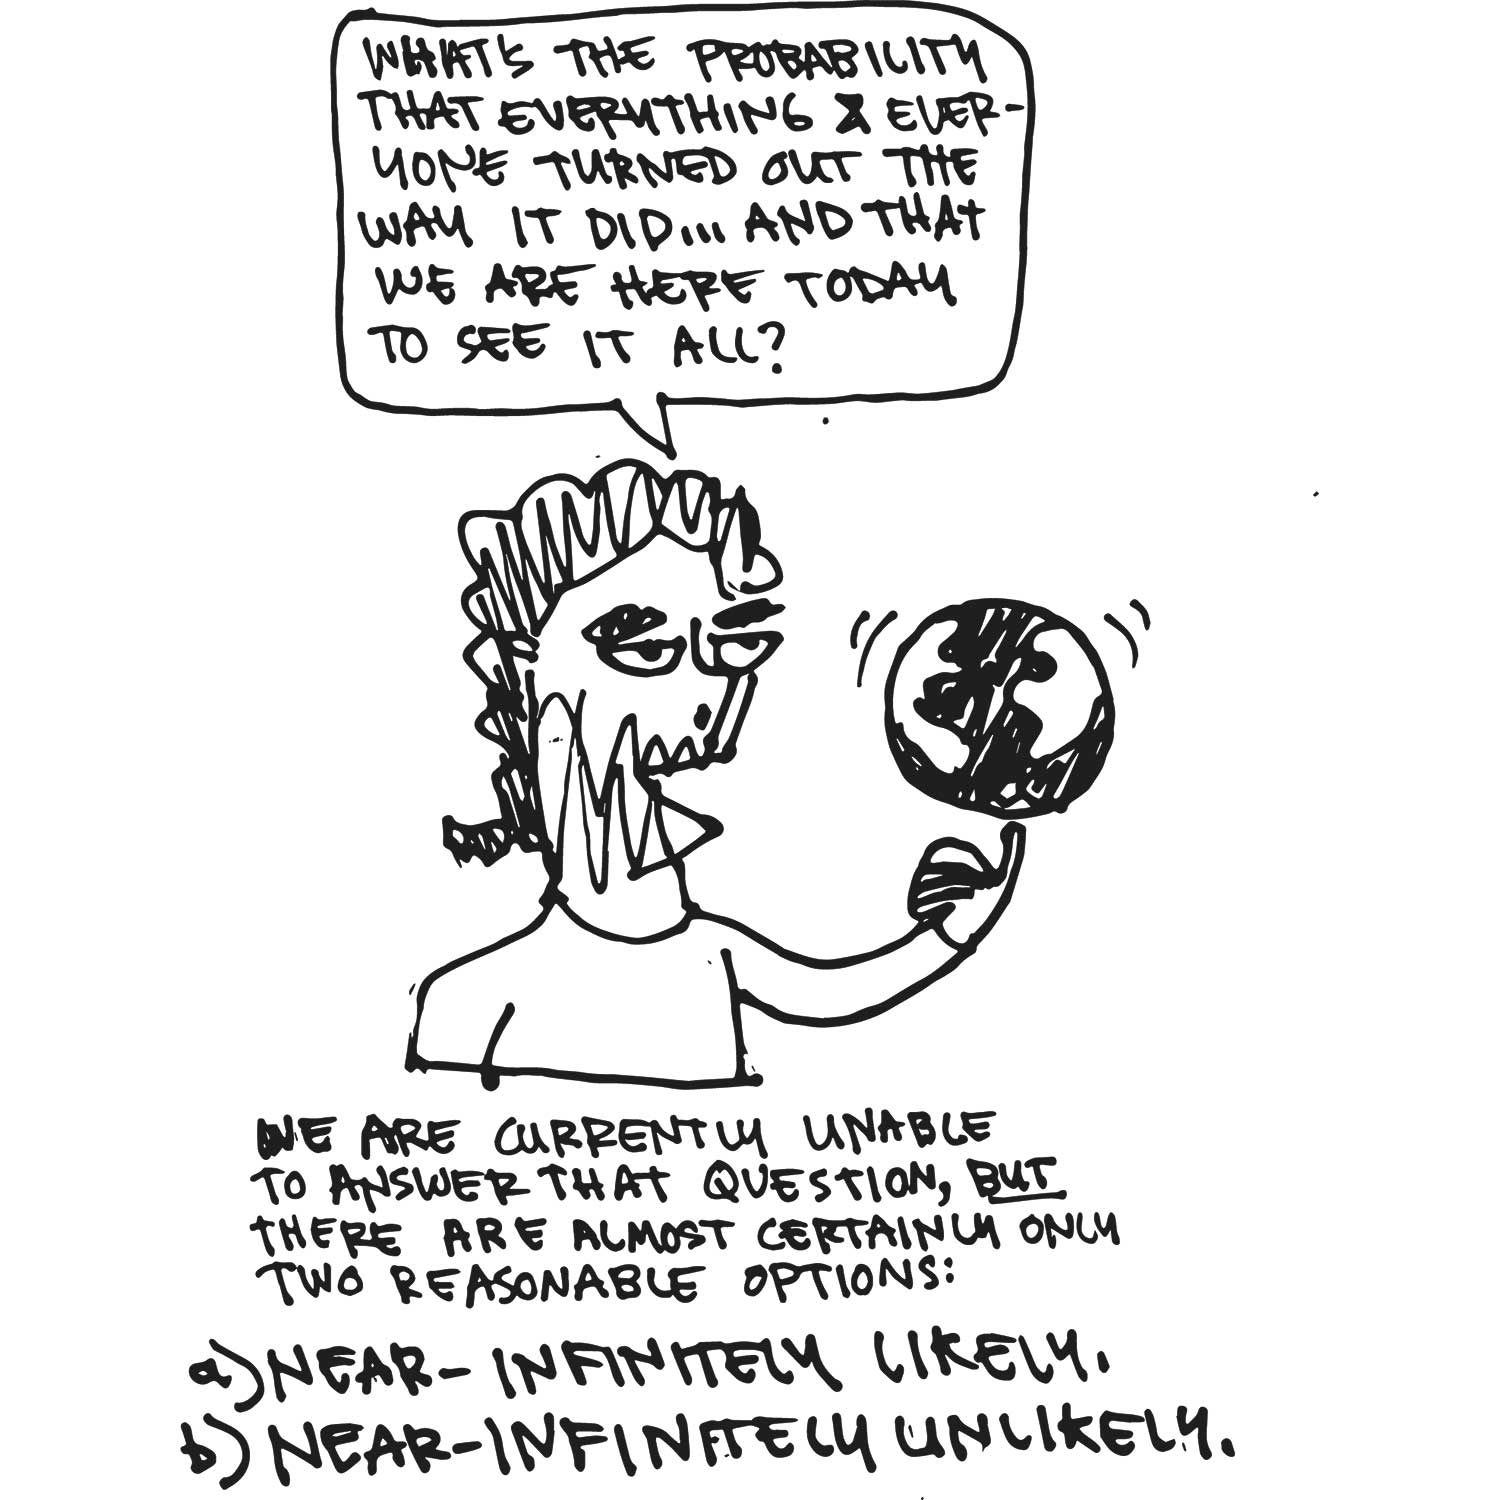 WHAT'S THE PROBABILITY
THAT EVERYTHING & EVER-
YONE TURNED OUT THE
WAY IT DID... AND THAT
WE ARE HERE TODAY
TO SEE IT ALL?
WE ARE CURRENTLY UNABLE
TO ANSWER THAT QUESTION, BUT
THERE ARE ALMOST CERTAINLY ONLY
TWO REASONABLE OPTIONS:
a) NEAR-INFINITELY LIKELY.
b) NEAR-INFINITELY UNLIKELY.